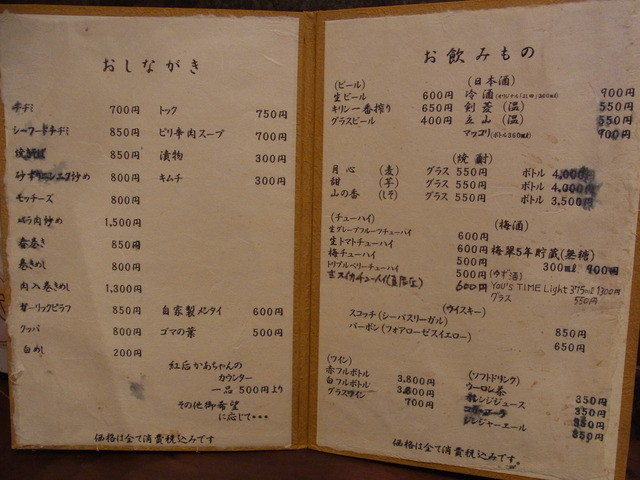 おしながき
チヂミ 700円
シーフードチヂミ 850円
850円
砂ずりニンニク炒め 800円
モッチーズ 800円
バラ肉炒め 1,500円
春巻き 850円
巻きめし 800円
肉入巻きめし 1,300円
ガーリックピラフ 850円
クッパ 800円
白めし 200円
トック 750円
ピリ辛肉スープ 700円
漬物 300円
キムチ 300円
自家製メンタイ 600円
ゴマの葉 500円
紅后かあちゃんの
カウンター
一品 500円より
その他御希望
に応じて・・・
価格は全て消費税込みです
お飲みもの
(ビール)
生ビール 600円
キリン一番搾り 650円
グラスビール 400円
(日本酒)
冷酒 900円
剣菱(温) 550円
立山(温) 550円
マッコリ(ボトル360ml) 700円
(焼酎)
月心 (麦) グラス 550円 ボトル 4,000円
甜 (芋) グラス 550円 ボトル 4,000円
山の香 (しそ) グラス 550円 ボトル 3,500円
(チューハイ)
生グレープフルーツチューハイ 600円
生トマトチューハイ 600円
梅チューハイ 500円
トリプルベリーチューハイ 500円
600円
(梅酒)
梅翠5年貯蔵(無糖)
300ml 900円
(ゆず酒)
You's TIME Light 375ml 1300円
グラス 550円
(ウイスキー)
スコッチ(シーバスリーガル) 850円
バーボン(フォアローゼスイエロー) 650円
(ワイン)
赤フルボトル 3,800円
白フルボトル 3,800円
グラスワイン 700円
(ソフトドリンク)
ウーロン茶 350円
オレンジジュース 350円
コカ・コーラ 350円
ジンジャーエール 350円
価格は全て消費税込みです。